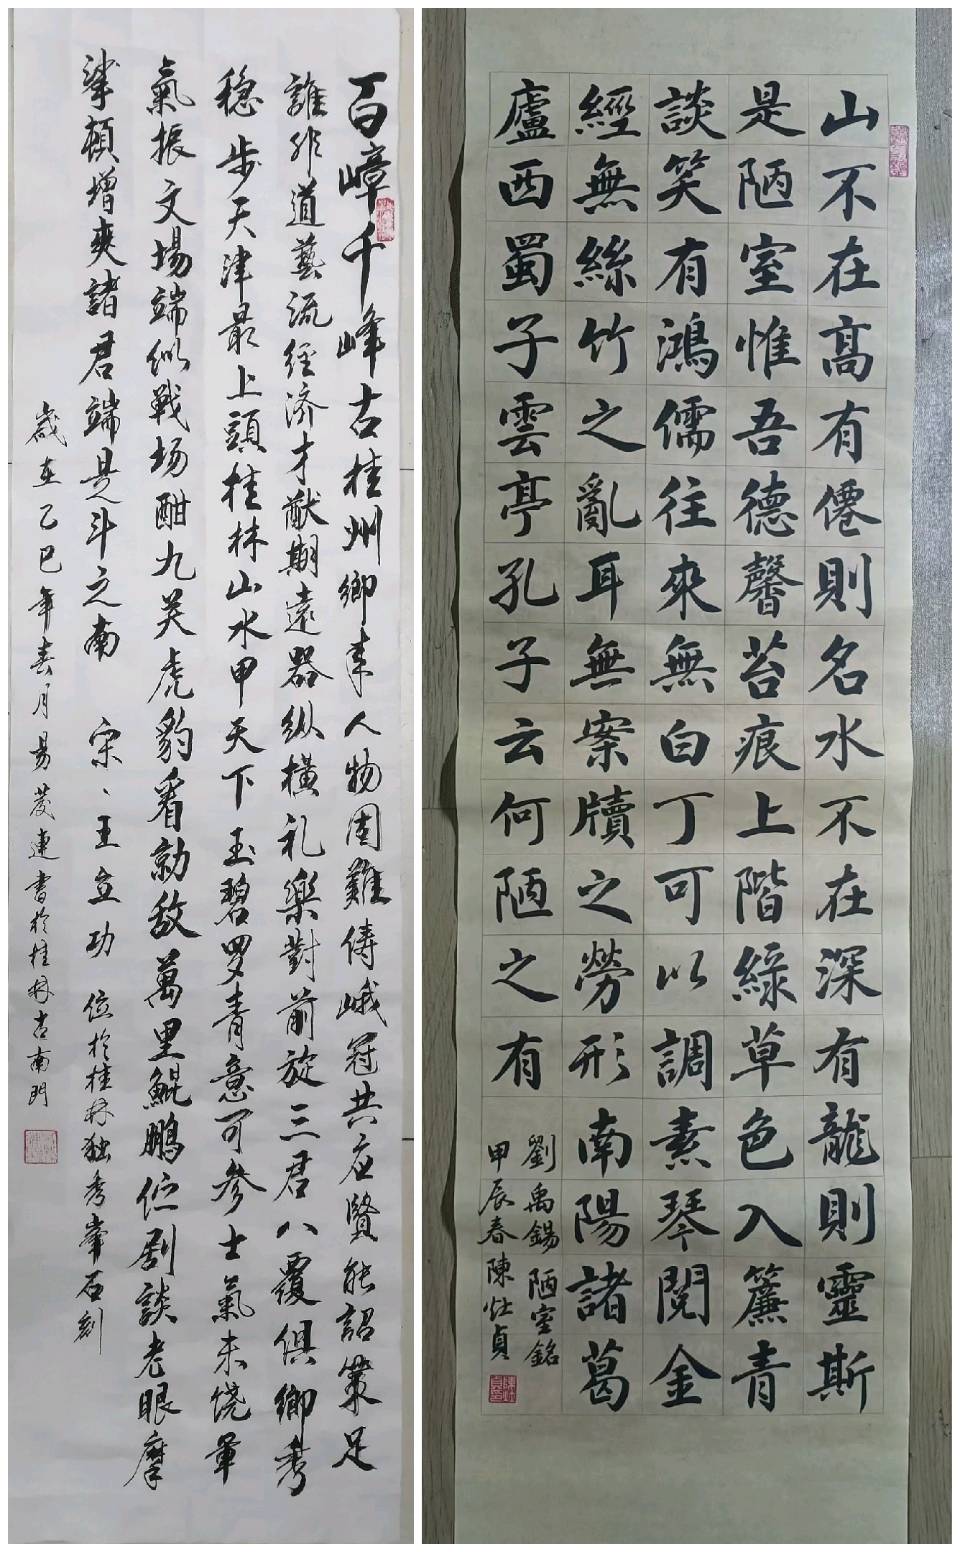 百嶂千峰古桂州鄉来人物固難儔峨冠共应賢能詔策足
誰非道藝流经济才猷期遠器纵横礼樂對前旋三君八覆俱鄉秀
稳步天津最上頭桂林山水甲天下玉碧罗青意可参士氣未饶軍
氣振文場端似戰场酣九关虎豹看勍敌萬里鯤鵬伫剧談老眼摩
挲頓增爽諸君端是斗之南 宋、王正功 位於桂林独秀峯石刻
歲在乙巳年春月易茂連書於桂林古南門
山不在高有僊則名水不在深有龍則靈斯
是陋室惟吾德馨苔痕上階綠草色入簾青
談笑有鴻儒往來無白丁可以調素琴閱金
經無絲竹之亂耳無案牘之勞形南陽諸葛
廬西蜀子雲亭孔子云何陋之有
劉禹錫 陋室銘
甲辰春陳灶貞